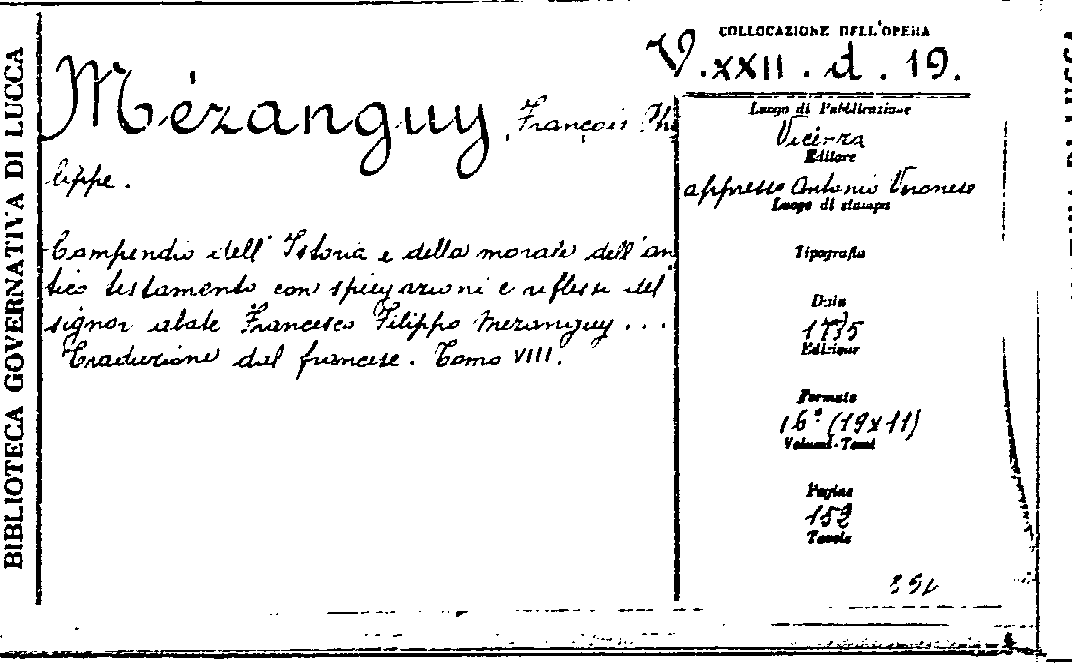 BIBLIOTECA GOVERNATIVA DI LUCCA
COLLOCAZIONE DELL'OPERA
V.XXII.d.19.
Mézanguy, François Phi
lippe.
Compendio dell'Istoria e della morale dell'an
tico testamento con spiegazioni e riflessi del
signor abate Francesco Filippo Mezanguy...
Traduzione dal francese. Tomo VIII.
Luogo di Pubblicazione
Vicenza
Editore
appresso Antonio Veronese
Luogo di stampa
Tipografia
Data
1775
Edizione
Formato
16° (19x11)
Volumi-Tomi
Pagine
152
Tavole